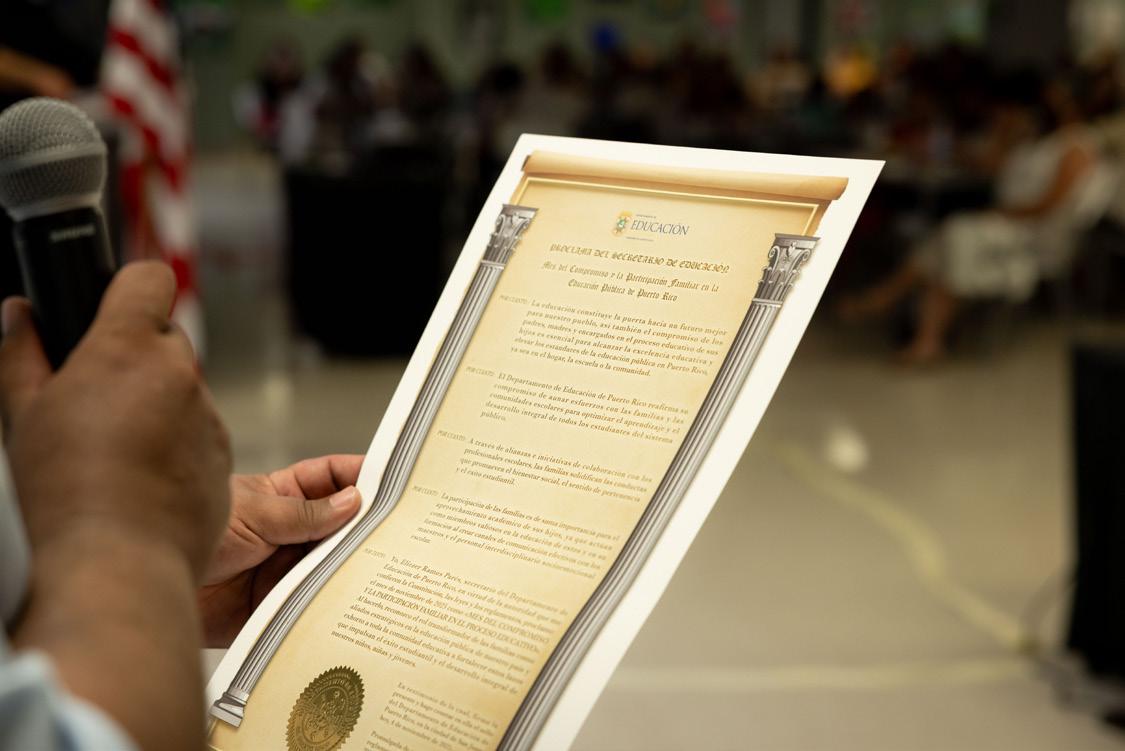 EDUCACIÓN
PROCLAMA DEL SECRETARIO DE EDUCACIÓN
Mes del Compromiso y la Participación Familiar en la
Educación Pública de Puerto Rico
POR CUANTO: La educación constituye la puerta hacia un futuro mejor
para nuestro pueblo, así también el compromiso de los
padres, madres y encargados en el proceso educativo de sus
hijos es esencial para alcanzar la excelencia educativa y
elevar los estándares de la educación pública en Puerto Rico,
ya sea en el hogar, la escuela o la comunidad.
POR CUANTO: El Departamento de Educación de Puerto Rico reafirma su
compromiso de aunar esfuerzos con las familias y las
comunidades escolares para optimizar el aprendizaje y el
desarrollo integral de todos los estudiantes del sistema
público.
POR CUANTO: A través de alianzas e iniciativas de colaboración con los
profesionales escolares, las familias solidifican las conductas
que promueven el bienestar social, el sentido de pertenencia
y el éxito estudiantil.
POR CUANTO: La participación de las familias es de suma importancia para el
aprovechamiento académico de sus hijos, ya que actúan
como miembros valiosos en la educación de estos y en su
formación al crear canales de comunicación efectivos con los
maestros y el personal interdisciplinario socioemocional
escolar.
POR TANTO: Yo, Eliezer Ramos Parés, secretario del Departamento de
Educación de Puerto Rico, en virtud de la autoridad que me
confieren la Constitución, las leyes y los reglamentos, proclamo
el mes de noviembre de 2025 como «MES DEL COMPROMISO
Y LA PARTICIPACIÓN FAMILIAR EN EL PROCESO EDUCATIVO».
Al hacerlo, reconozco el rol transformador de las familias como
aliados estratégicos en la educación pública de nuestro país y
exhorto a toda la comunidad educativa a fortalecer estos lazos
que impulsan el éxito estudiantil y el desarrollo integral de
nuestros niños, niñas y jóvenes.
En testimonio de lo cual, firmo la
presente y hago constar en ella el sello
del Departamento de Educación de
Puerto Rico, en la ciudad de San Juan,
hoy, 4 de noviembre de